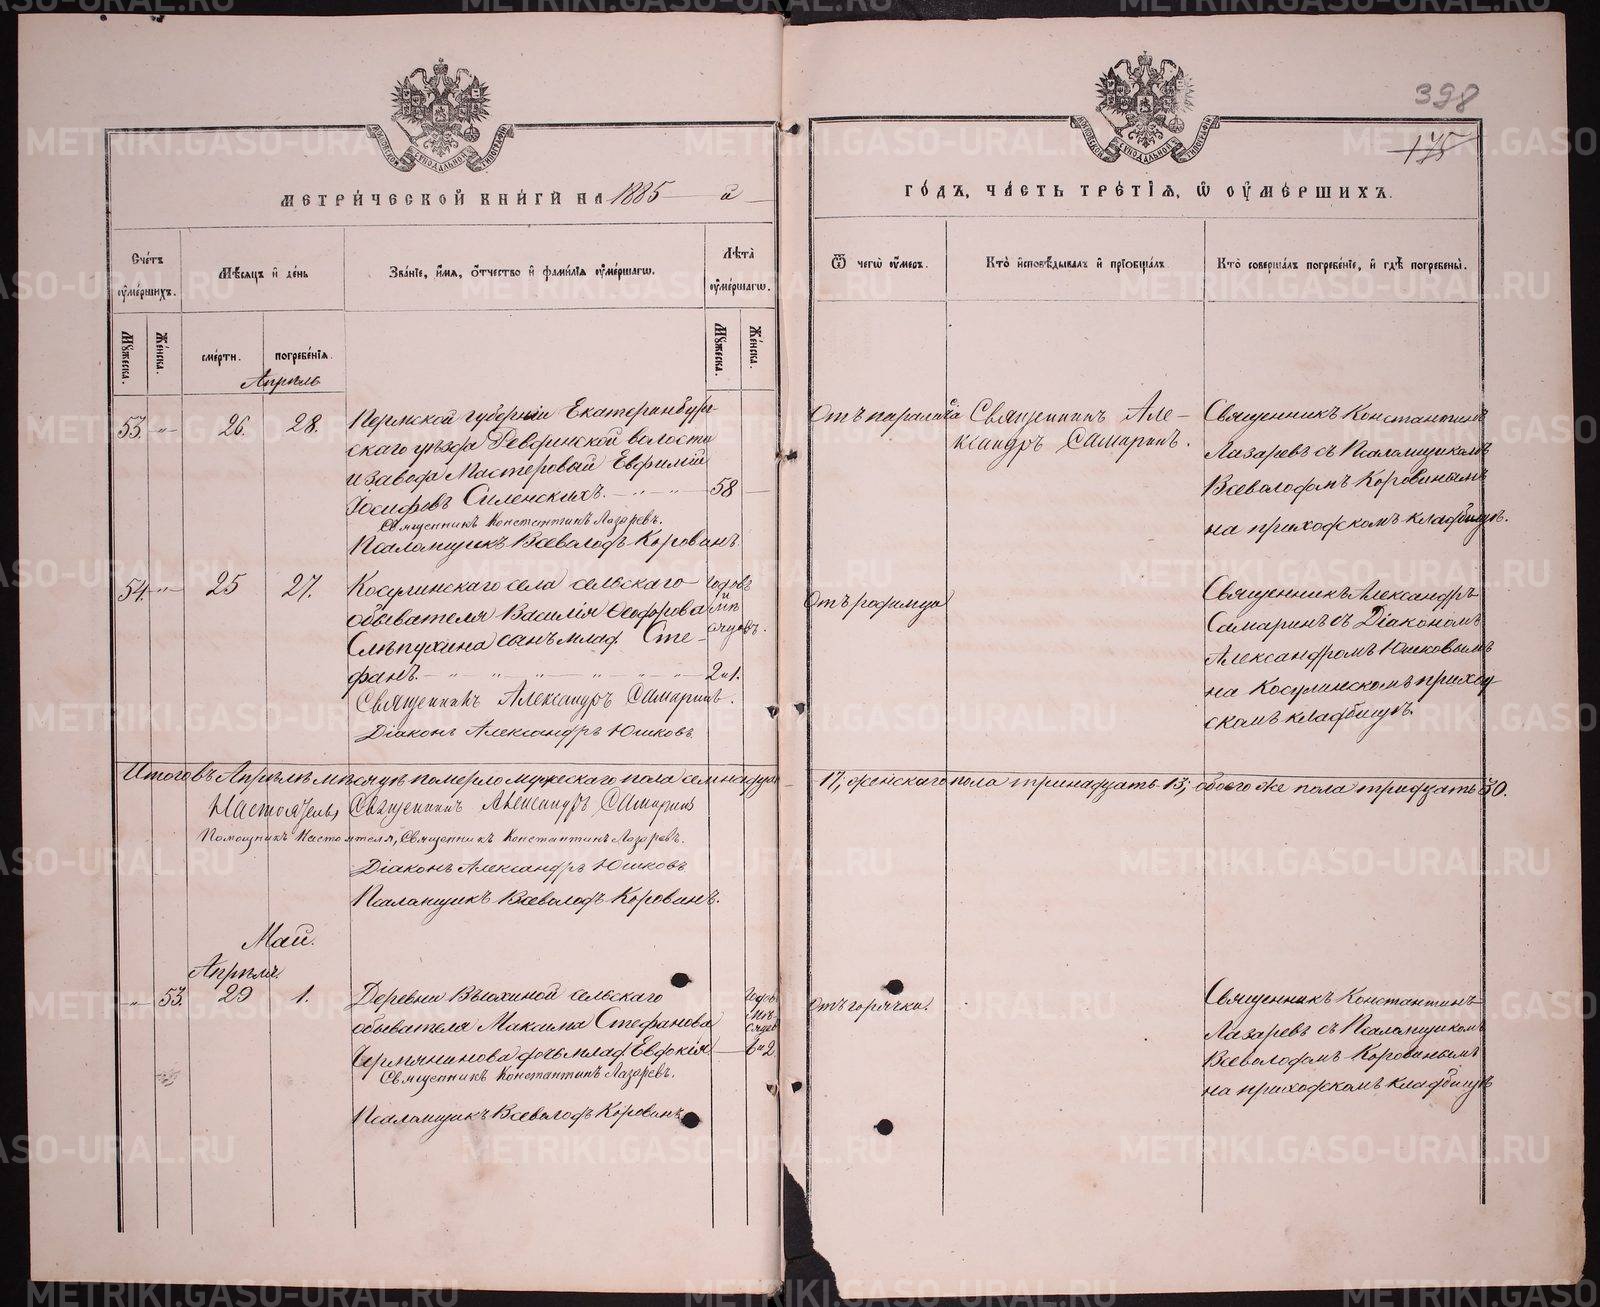 398
175
МЕТРИЧЕСКОЙ КНИГИ НА 1885 й
ГОДЪ, ЧАСТЬ ТРЕТІЯ, Ѿ ОУМЕРШИХЪ.
Счетъ оумершихъ.
Мѣсяцъ и день
Званіе, имя, отчество и фамилія оумершагѡ.
Лѣта оумершагѡ.
Ѿ чегѡ оумеръ.
Кто исповѣдывалъ и пріобщалъ.
Кто совершалъ погребеніе, и гдѣ погребены.
Мужеска.
Женска.
смерти.
погребенія.
Мужеска.
Женска.
Апрѣль
53. -"- 26. 28.
Пермской губерніи Екатеринбург-
скаго уѣзда Ревдинской волости
и завода Мастеровой Евфимій
Іосифовъ Силенскихъ. 58
Священникъ Константинъ Лазаревъ.
Псаломщикъ Всеволодъ Коровинъ.
Отъ паралича
Священникъ Але-
ксандръ Самаринъ.
Священникъ Константинъ
Лазаревъ съ Псаломщикомъ
Всеволодомъ Коровинымъ
на приходскомъ кладбищѣ.
54. -"- 25 27.
Косулинскаго села сельскаго
обывателя Василія Ѳеодорова
Слѣпухина сынъ млад. Сте-
фанъ.
годовъ
и мѣ
сяцовъ.
2 и 1.
Священникъ Александръ Самаринъ.
Діаконъ Александръ Юшковъ.
Отъ родимца
Священникъ Александръ
Самаринъ съ Діакономъ
Александромъ Юшковымъ
на Косулинскомъ приход
скомъ кладбищѣ.
Итого въ Апрѣлѣ мѣсяцѣ померло мужескаго пола семнадцать 17; женскаго пола тринадцать 13; обоего же пола тридцать 30.
Настоятель, Священникъ Александръ Самаринъ
Помощникъ Настоятеля, Священникъ Константинъ Лазаревъ.
Діаконъ Александръ Юшковъ
Псаломщикъ Всеволодъ Коровинъ.
Май.
Апрѣля.
-"- 53. 29 1.
Деревни Вьюхиной сельскаго
обывателя Максима Стефанова
Чермянинова дочь млад. Евдокія
годов.
и мѣ
сяцев
Священникъ Константинъ Лазаревъ.
Псаломщикъ Всеволодъ Коровинъ
Отъ горячки.
Священникъ Константинъ
Лазаревъ съ Псаломщикомъ
Всеволодомъ Коровинымъ
на приходскомъ кладбищѣ
METRIKI.GASO-URAL.RU